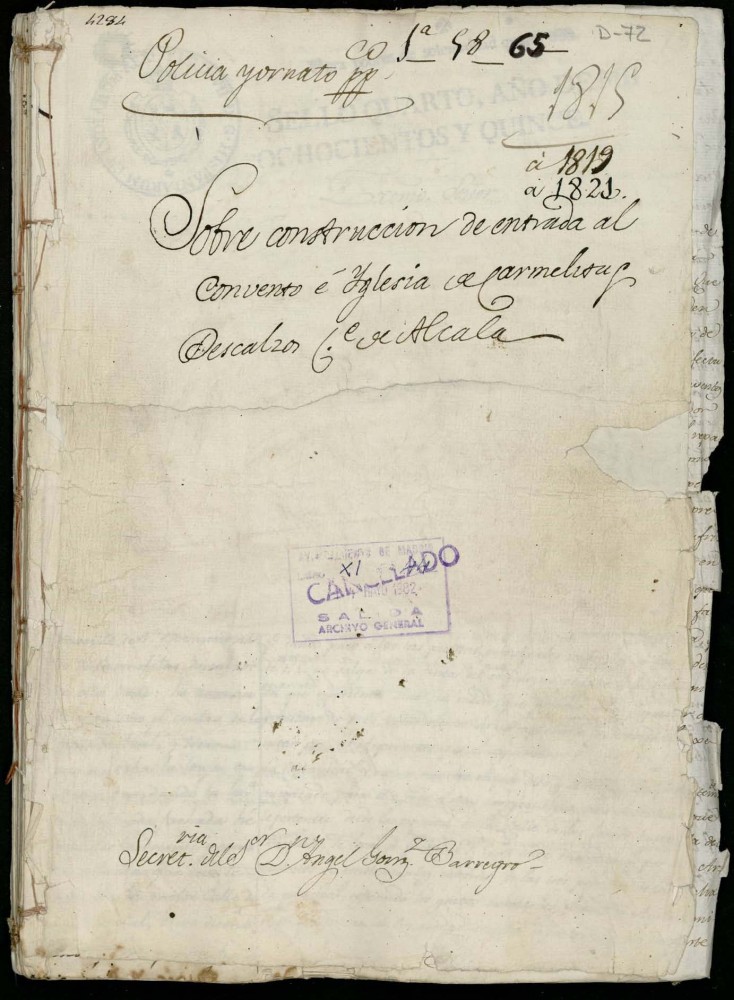 4284
D-72
1ª 58 65
Policia y ornato pp.co
1815
SELLO QUARTO, AÑO D
OCHOCIENTOS Y QUINCE.
á 1819
a 1821.
Sobre construccion de entrada al
Convento é Yglesia de Carmelitas
Descalzos C.e de Alcala
MADRID
XI
CANCELADO
1982
SALIDA
ARCHIVO GENERAL
Secret.ria del S.or D.n Angel Gonz.z Barreyro